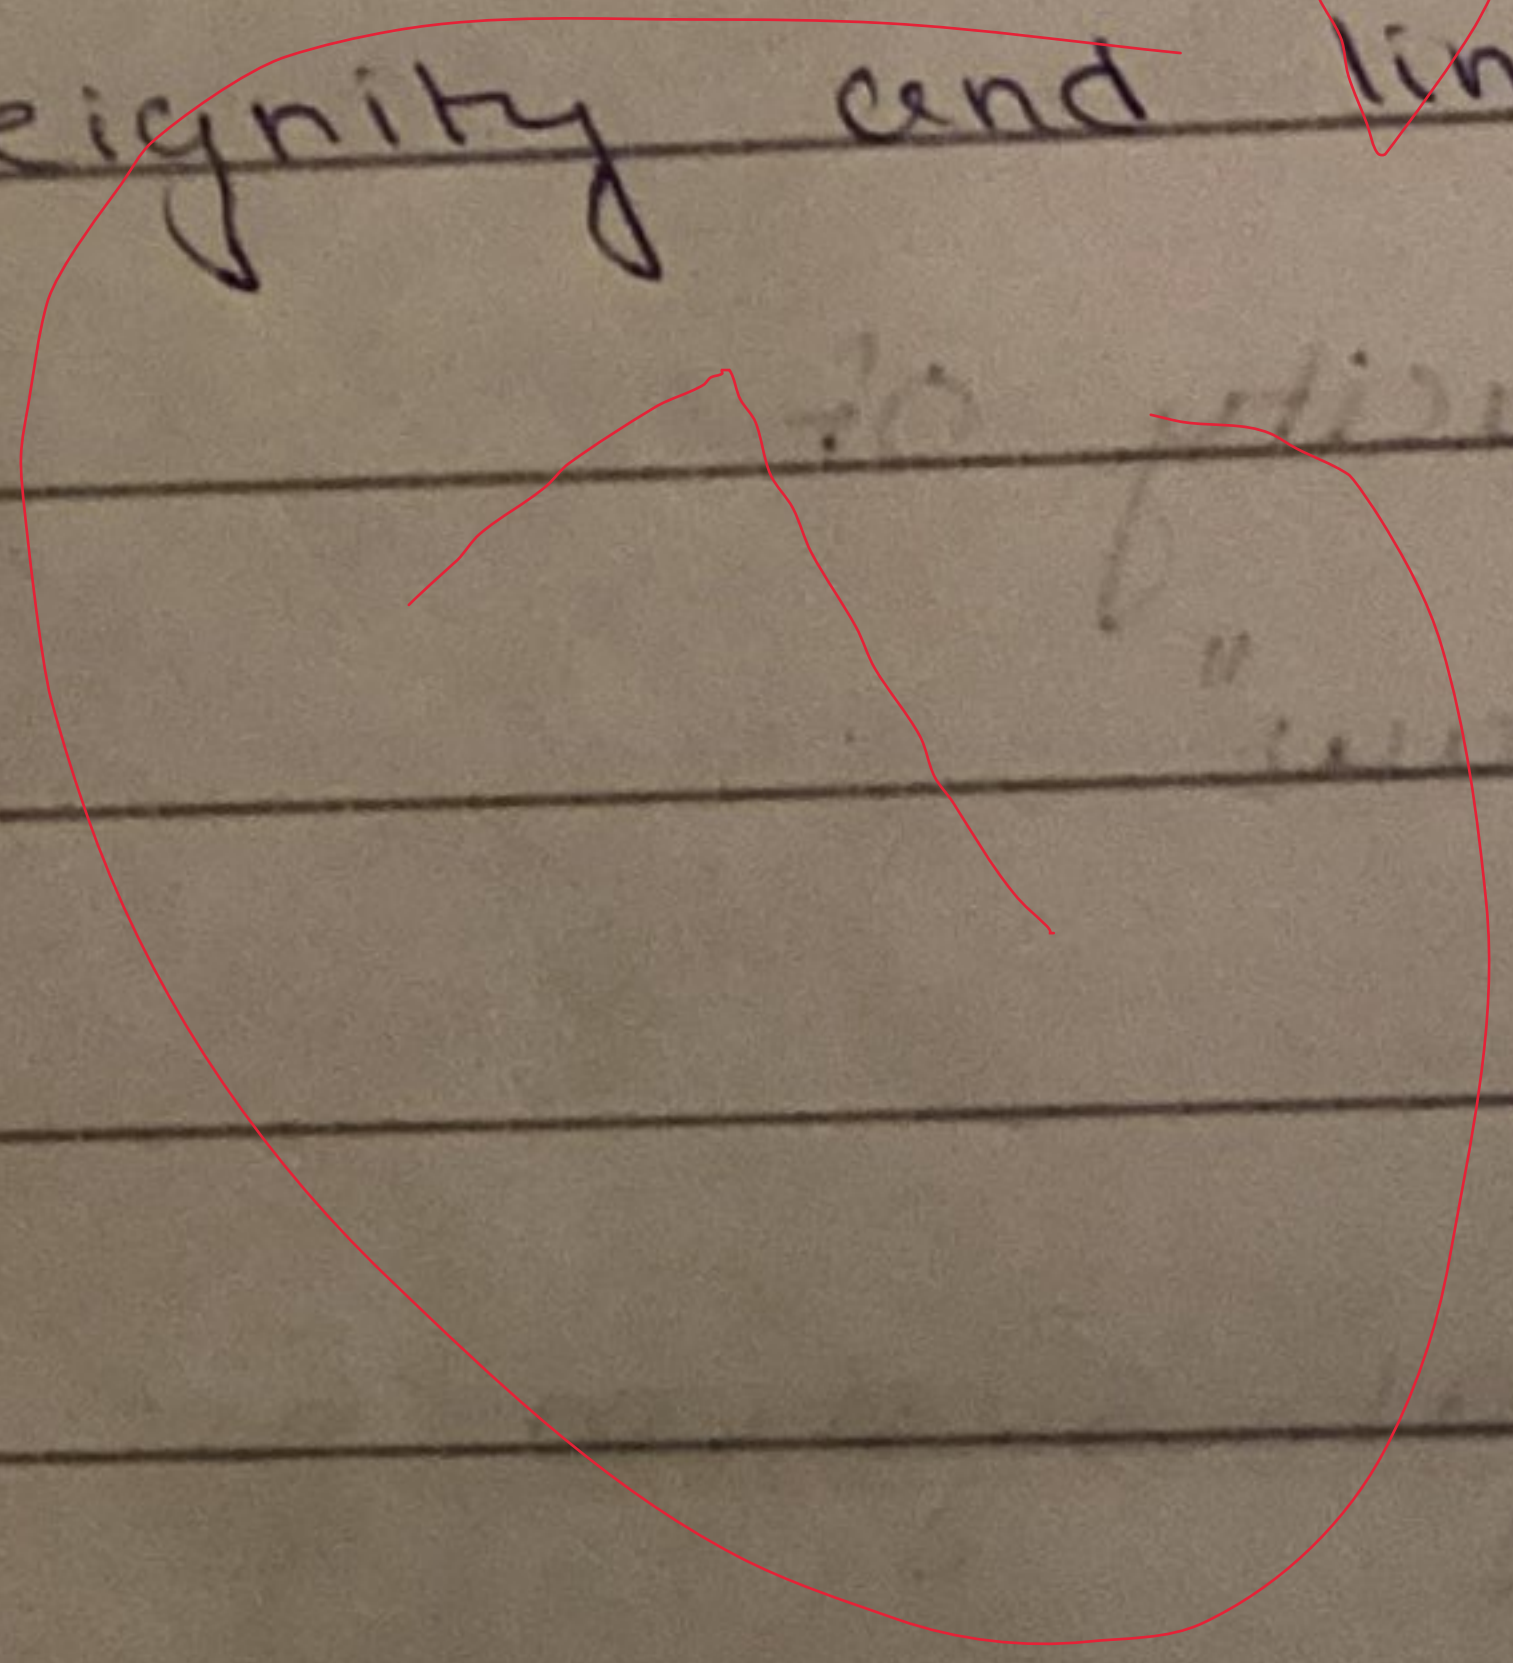 eignity and lin